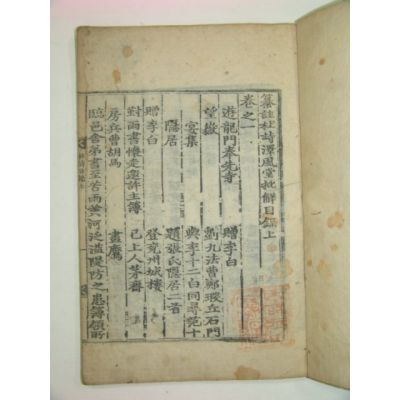 纂註杜詩澤風堂批解目錄上
卷之一
遊龍門奉先寺 贈李白
望嶽 劉九法曹鄭瑕丘石門
宴集 與李十二白同尋范十
隱居 題張氏隱居二首
贈李白 登兗州城樓
對雨書懷走邀許主簿 已上人茅齋
房兵曹胡馬 畫鷹
臨邑舍弟書至苦雨黃河泛溢隄防之患簿領所